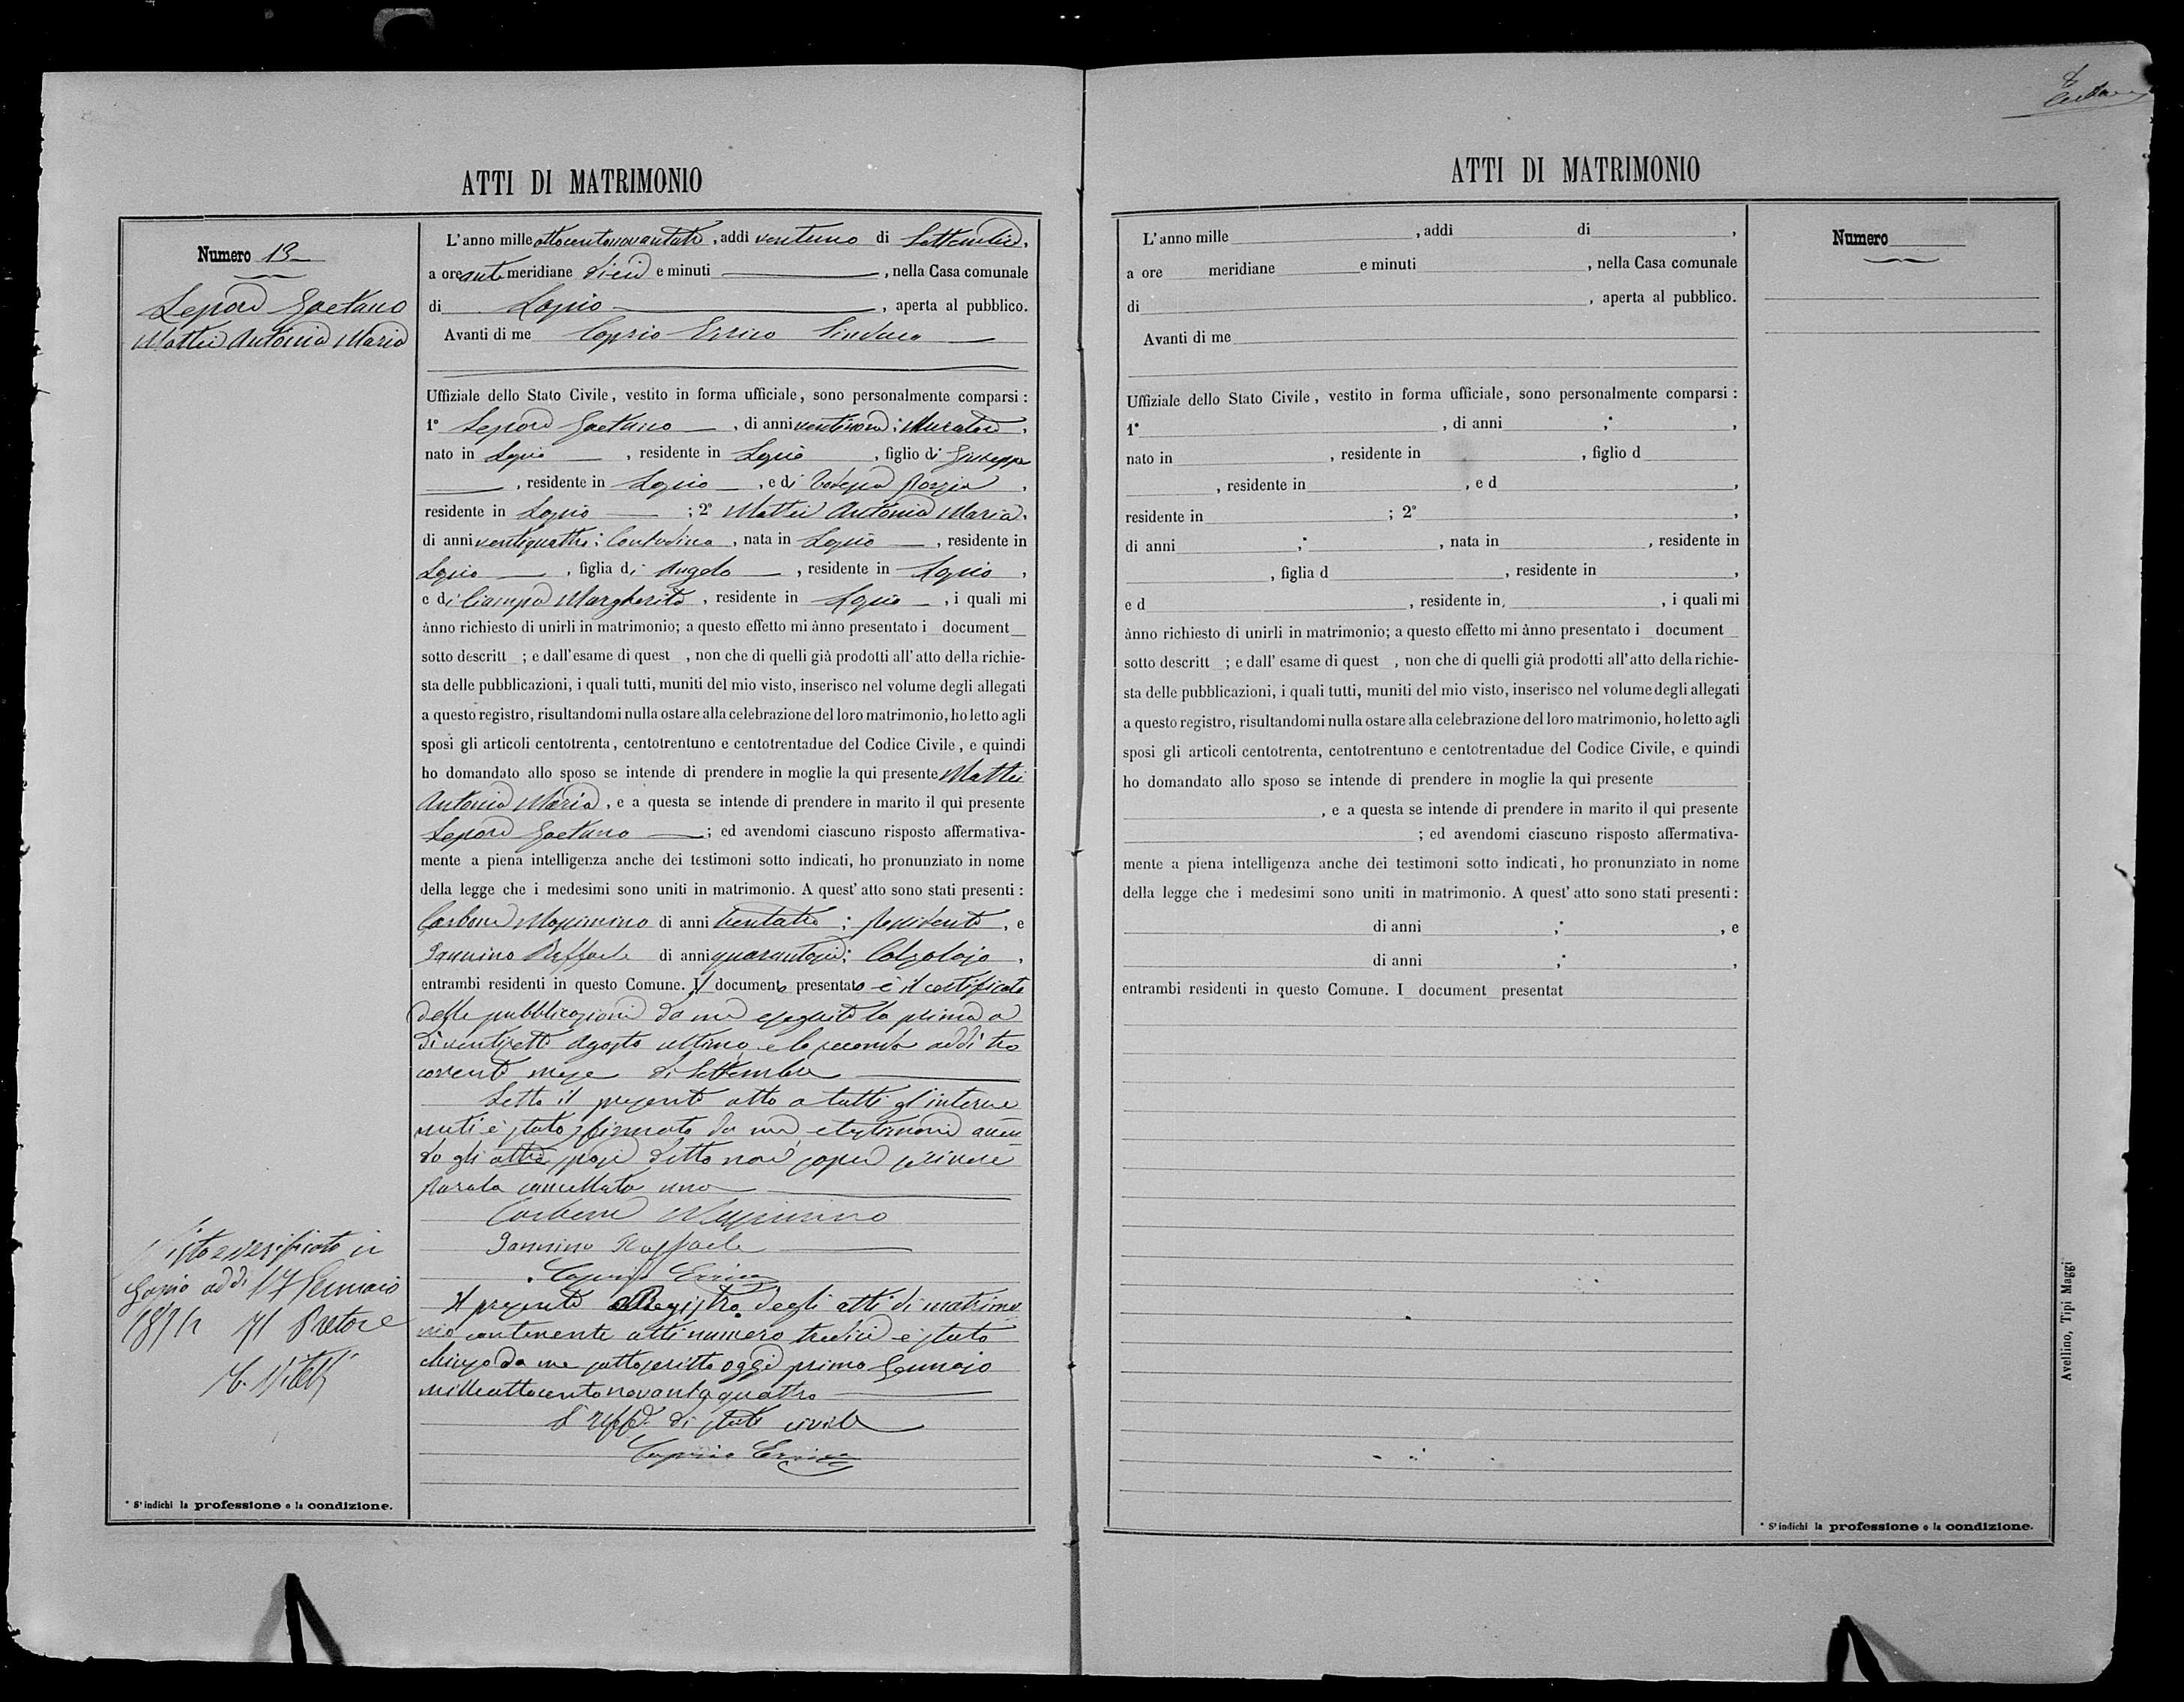 ATTI DI MATRIMONIO
Numero 13
Lepore Gaetano
Mattei Antonia Maria
L'anno mille ottocentonovantatre, addi ventuno di Settembre,
a ore ante meridiane dieci e minuti, nella Casa comunale
di Lapio, aperta al pubblico.
Avanti di me Caprio Errico Sindaco
Uffiziale dello Stato Civile, vestito in forma ufficiale, sono personalmente comparsi:
1° Lepore Gaetano, di anni ventinove; Muratore,
nato in Lapio, residente in Lapio, figlio di Giuseppe
, residente in Lapio, e di Porzia,
residente in Lapio; 2° Mattei Antonia Maria,
di anni ventiquattro; Contadina, nata in Lapio, residente in
Lapio, figlia di Angelo, residente in Lapio,
e di Ciampa Margherita, residente in Lapio, i quali mi
ànno richiesto di unirli in matrimonio; a questo effetto mi ànno presentato i document
sotto descritt ; e dall'esame di quest , non che di quelli già prodotti all'atto della richie-
sta delle pubblicazioni, i quali tutti, muniti del mio visto, inserisco nel volume degli allegati
a questo registro, risultandomi nulla ostare alla celebrazione del loro matrimonio, ho letto agli
sposi gli articoli centotrenta, centotrentuno e centotrentadue del Codice Civile, e quindi
ho domandato allo sposo se intende di prendere in moglie la qui presente Mattei
Antonia Maria, e a questa se intende di prendere in marito il qui presente
Lepore Gaetano; ed avendomi ciascuno risposto affermativa-
mente a piena intelligenza anche dei testimoni sotto indicati, ho pronunziato in nome
della legge che i medesimi sono uniti in matrimonio. A quest'atto sono stati presenti:
Carbone Massimino di anni trentatre; , e
Iannino Raffaele di anni quarantasei; Calzolajo,
entrambi residenti in questo Comune. Il documento presentato è il certificato
delle pubblicazioni da me eseguite la prima a
dì ventisette Agosto ultimo e la seconda addì tre
corrente mese di Settembre
Letto il presente atto a tutti gl'interve
nuti è stato firmato da me e testimoni aven
do gli altri sposi detto non saper scrivere
Parola cancellata una
Carbone Massimino
Iannino Raffaele
Caprio Errico
Il presente Registro degli atti di matrimo
nio contenente atti numero tredici è stato
chiuso da me sottoscritto oggi primo Gennajo
milleottocentonovantaquattro
L'Uff. di stato civile
Caprio Errico
Visto e verificato in
Lapio addì 17 Gennaio
1894 Il Pretore
* S'indichi la professione o la condizione.
ATTI DI MATRIMONIO
L'anno mille , addi di ,
a ore meridiane e minuti , nella Casa comunale
di , aperta al pubblico.
Avanti di me
Uffiziale dello Stato Civile, vestito in forma ufficiale, sono personalmente comparsi:
1° , di anni ; ,
nato in , residente in , figlio d
, residente in , e d ,
residente in ; 2° ,
di anni ; , nata in , residente in
, figlia d , residente in ,
e d , residente in, , i quali mi
ànno richiesto di unirli in matrimonio; a questo effetto mi ànno presentato i document
sotto descritt ; e dall'esame di quest , non che di quelli già prodotti all'atto della richie-
sta delle pubblicazioni, i quali tutti, muniti del mio visto, inserisco nel volume degli allegati
a questo registro, risultandomi nulla ostare alla celebrazione del loro matrimonio, ho letto agli
sposi gli articoli centotrenta, centotrentuno e centotrentadue del Codice Civile, e quindi
ho domandato allo sposo se intende di prendere in moglie la qui presente
, e a questa se intende di prendere in marito il qui presente
; ed avendomi ciascuno risposto affermativa-
mente a piena intelligenza anche dei testimoni sotto indicati, ho pronunziato in nome
della legge che i medesimi sono uniti in matrimonio. A quest'atto sono stati presenti:
di anni ; , e
di anni ; ,
entrambi residenti in questo Comune. I document presentat
Numero
* S'indichi la professione o la condizione.
Avellino, Tipi Maggi